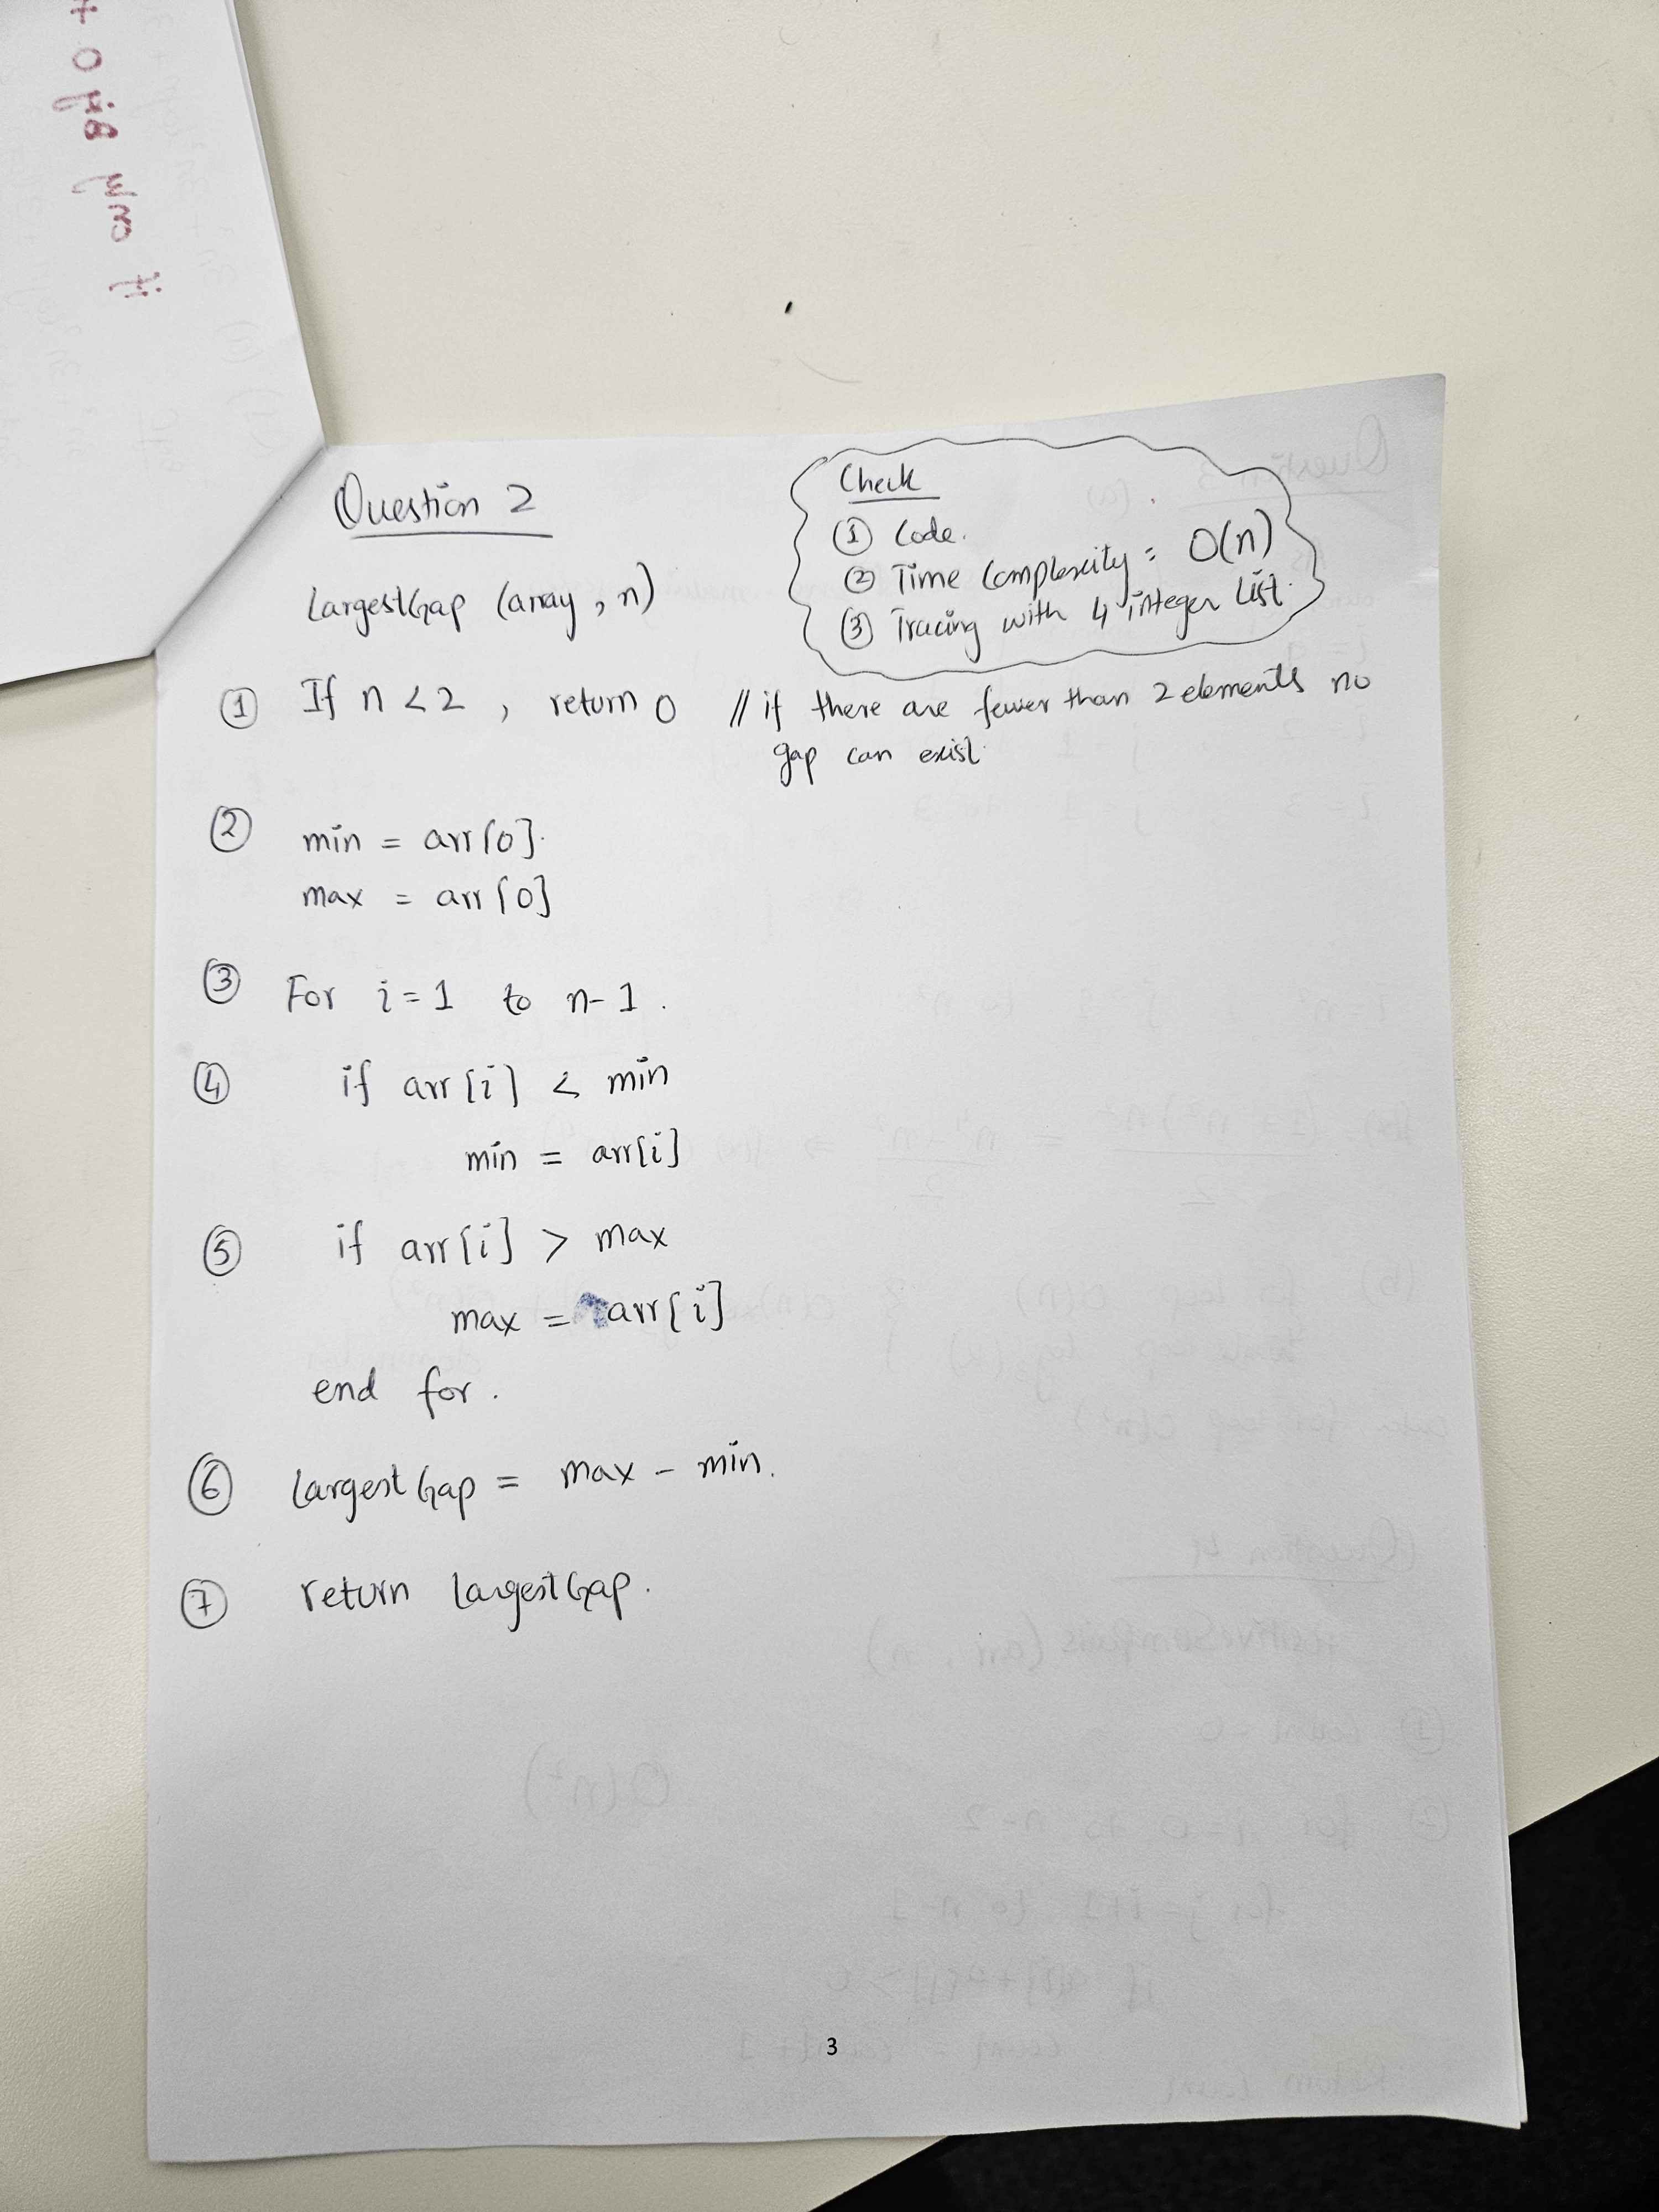 Question 2
Check
① Code.
② Time Complexity: O(n)
③ Tracing with 4 integer list.
LargestGap (array, n)
① If n < 2, return 0 // if there are fewer than 2 elements no
gap can exist.
② min = arr[0].
max = arr[0]
③ For i = 1 to n-1.
④ if arr[i] < min
min = arr[i]
⑤ if arr[i] > max
max = arr[i]
end for.
⑥ LargestGap = max - min.
⑦ return LargestGap.
3